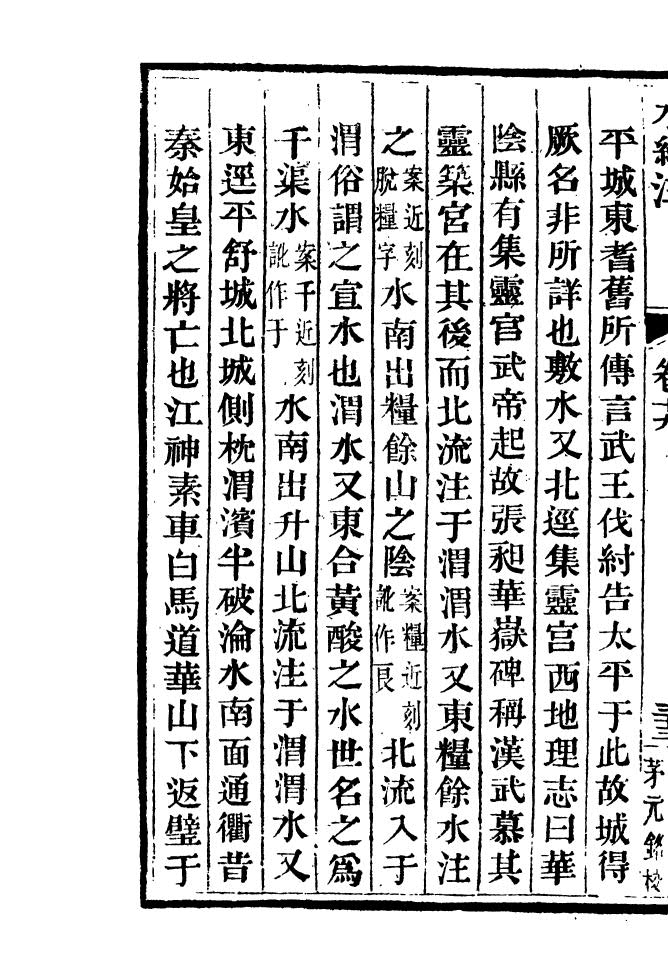 水經注
卷十九
三
茅元銘校
平城東耆舊所傳言武王伐紂告太平于此故城得
厥名非所詳也敷水又北逕集靈宫西地理志曰華
陰縣有集靈宫武帝起故張昶華嶽碑稱漢武慕其
靈築宮在其後而北流注于渭渭水又東糧餘水注
之案近刻脫糧字水南出糧餘山之陰案糧近刻訛作艮北流入于
渭俗謂之宣水也渭水又東合黃酸之水世名之爲
千渠水案千近刻訛作于水南出升山北流注于渭渭水又
東逕平舒城北城側枕渭濱半破淪水南面通衢昔
秦始皇之將亡也江神素車白馬道華山下返璧于